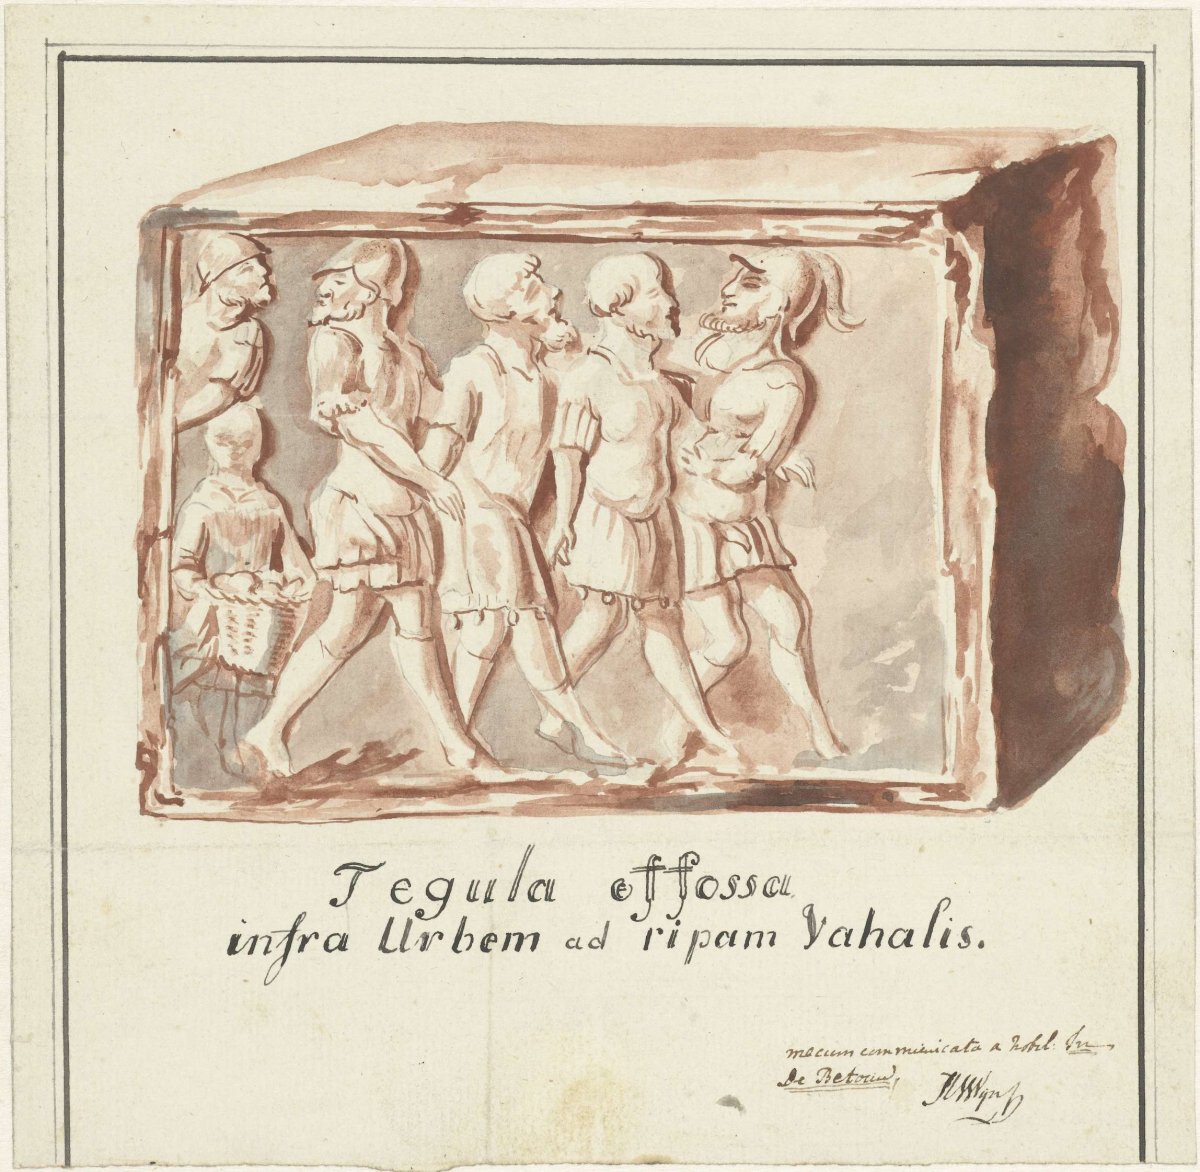 Tegula effossa
infra Urbem ad ripam Vahalis.
mecum communicata a Nobil:
De Betouw,